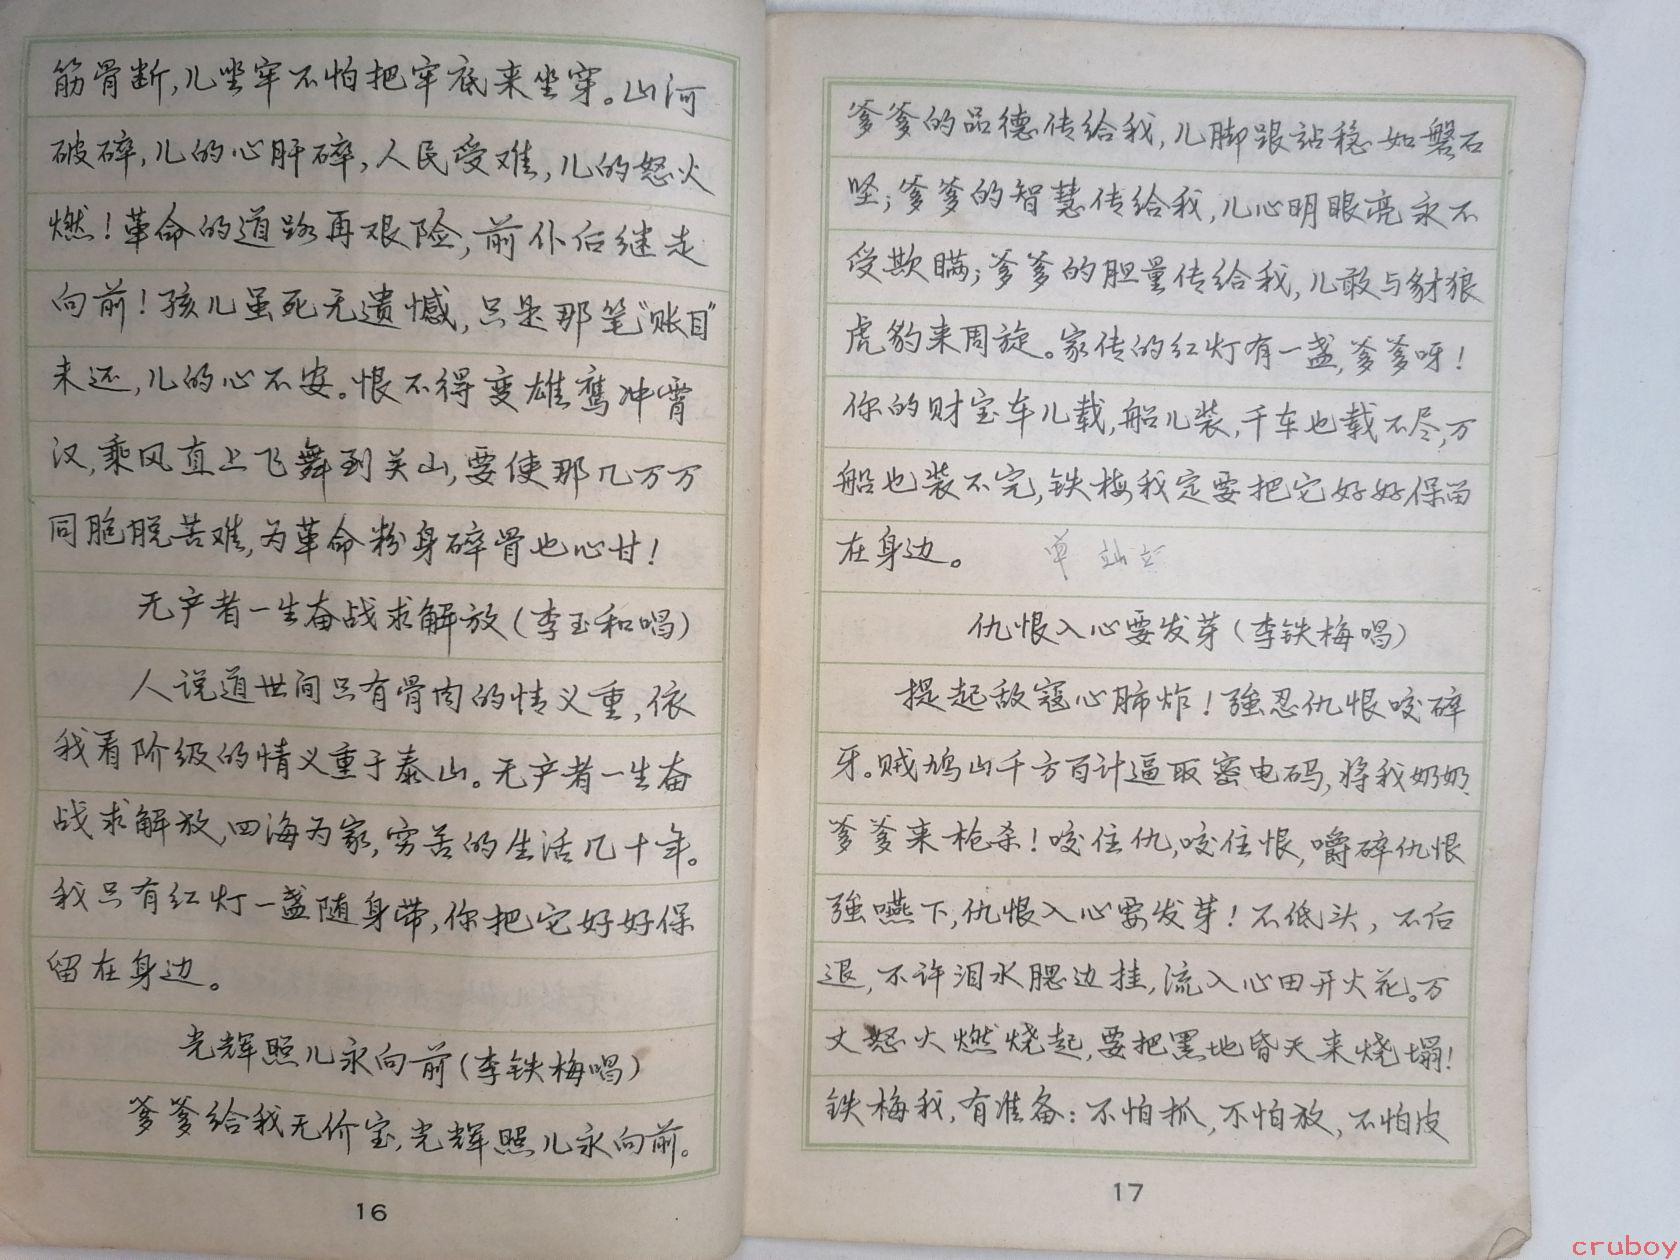 筋骨断,儿坐牢不怕把牢底来坐穿。山河
破碎,儿的心肝碎,人民受难,儿的怒火
燃！革命的道路再艰险,前仆后继走
向前！孩儿虽死无遗憾,只是那笔"账目"
未还,儿的心不安。恨不得变雄鹰冲霄
汉,乘风直上飞舞到关山,要使那几万万
同胞脱苦难,为革命粉身碎骨也心甘！
无产者一生奋战求解放(李玉和唱)
人说道世间只有骨肉的情义重,依
我看阶级的情义重于泰山。无产者一生奋
战求解放,四海为家,穷苦的生活几十年。
我只有红灯一盏随身带,你把它好好保
留在身边。
光辉照儿永向前(李铁梅唱)
爹爹给我无价宝,光辉照儿永向前。
16
爹爹的品德传给我,儿脚跟站稳如磐石
坚;爹爹的智慧传给我,儿心明眼亮永不
受欺瞒;爹爹的胆量传给我,儿敢与豺狼
虎豹来周旋。家传的红灯有一盏,爹爹呀！
你的财宝车儿载,船儿装,千车也载不尽,万
船也装不完,铁梅我定要把它好好保留
在身边。
仇恨入心要发芽(李铁梅唱)
提起敌寇心肺炸！强忍仇恨咬碎
牙。贼鸠山千方百计逼取密电码,将我奶奶
爹爹来枪杀！咬住仇,咬住恨,嚼碎仇恨
强嚥下,仇恨入心要发芽！不低头,不后
退,不许泪水腮边挂,流入心田开火花。万
丈怒火燃烧起,要把黑地昏天来烧塌！
铁梅我,有准备:不怕抓,不怕放,不怕皮
17
cruboy